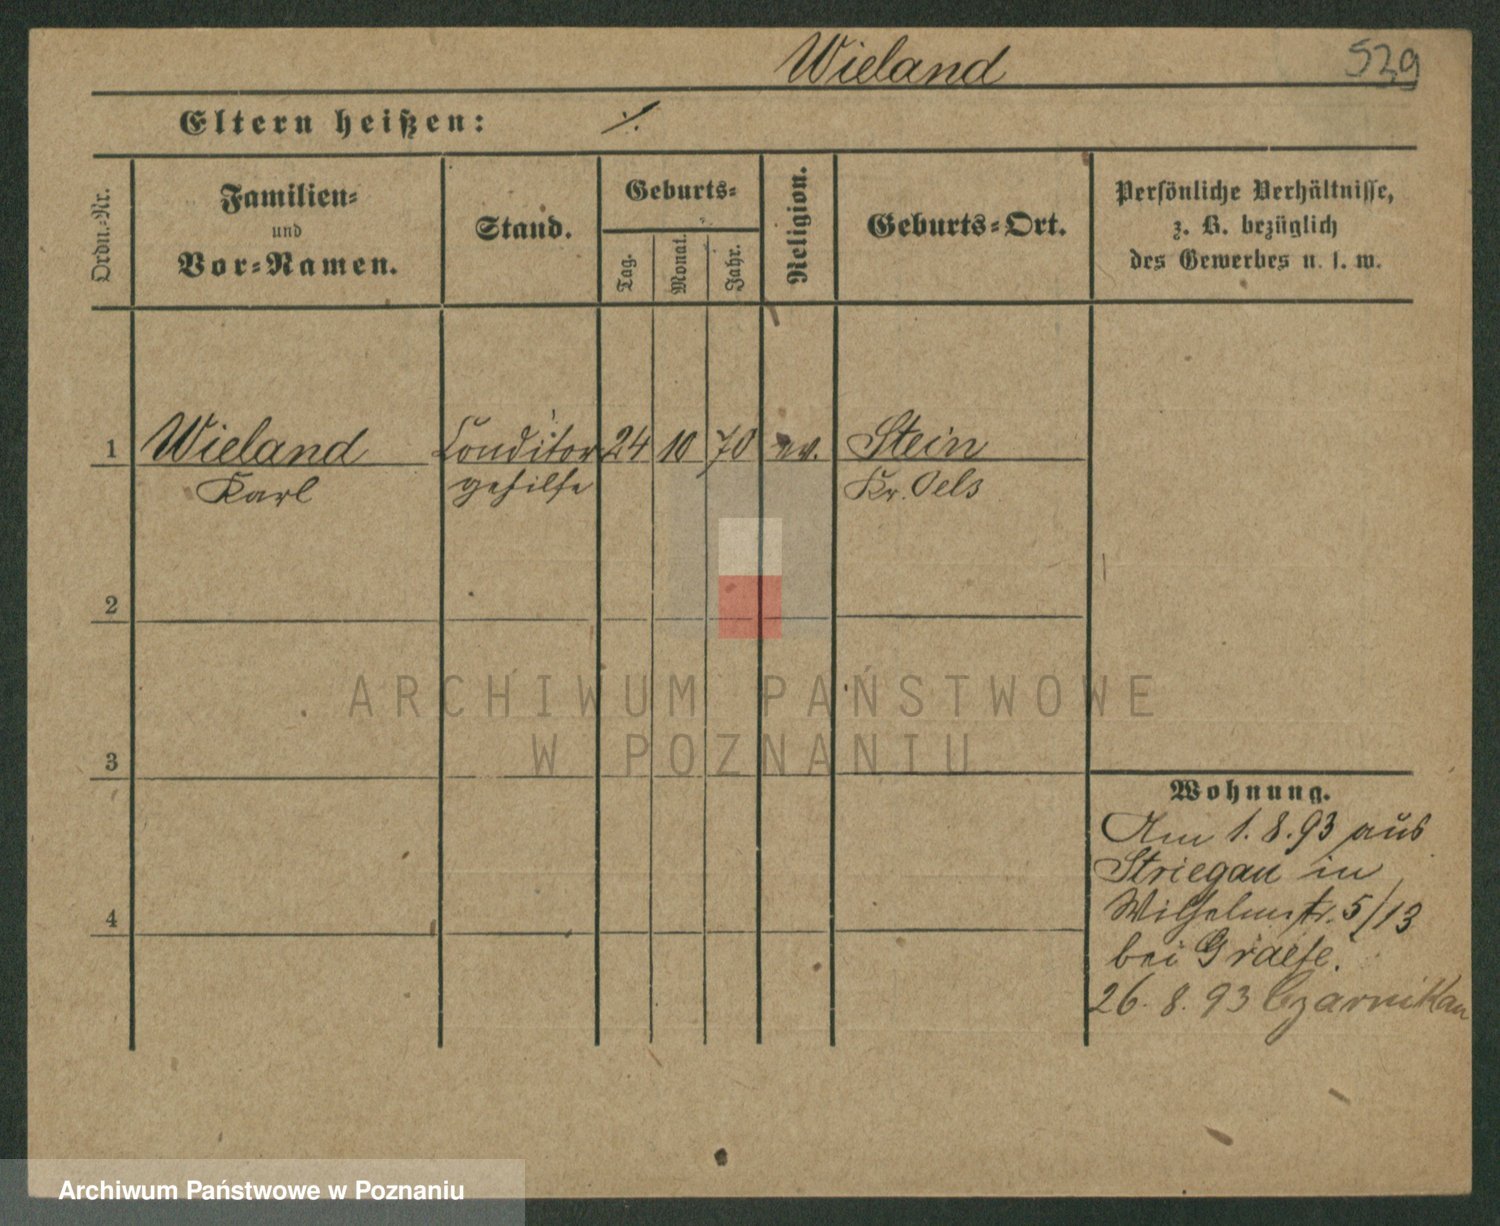 Wieland
529
Eltern heißen: ·/.
Ordn.-Nr.
Familien-
und
Vor-Namen.
Stand.
Geburts-
Tag.
Monat.
Jahr.
Religion.
Geburts-Ort.
Persönliche Verhältnisse,
z. B. bezüglich
des Gewerbes u. s. w.
1 Wieland Conditor 24 10 70 ev. Stein
Karl gehilfe Kr. Oels
2
3
4
Wohnung.
Am 1.8.93 aus
Striegau in
Wilhelmstr. 5/13
bei Graefe.
26.8.93 Czarnikau
ARCHIWUM PAŃSTWOWE
W POZNANIU
Archiwum Państwowe w Poznaniu